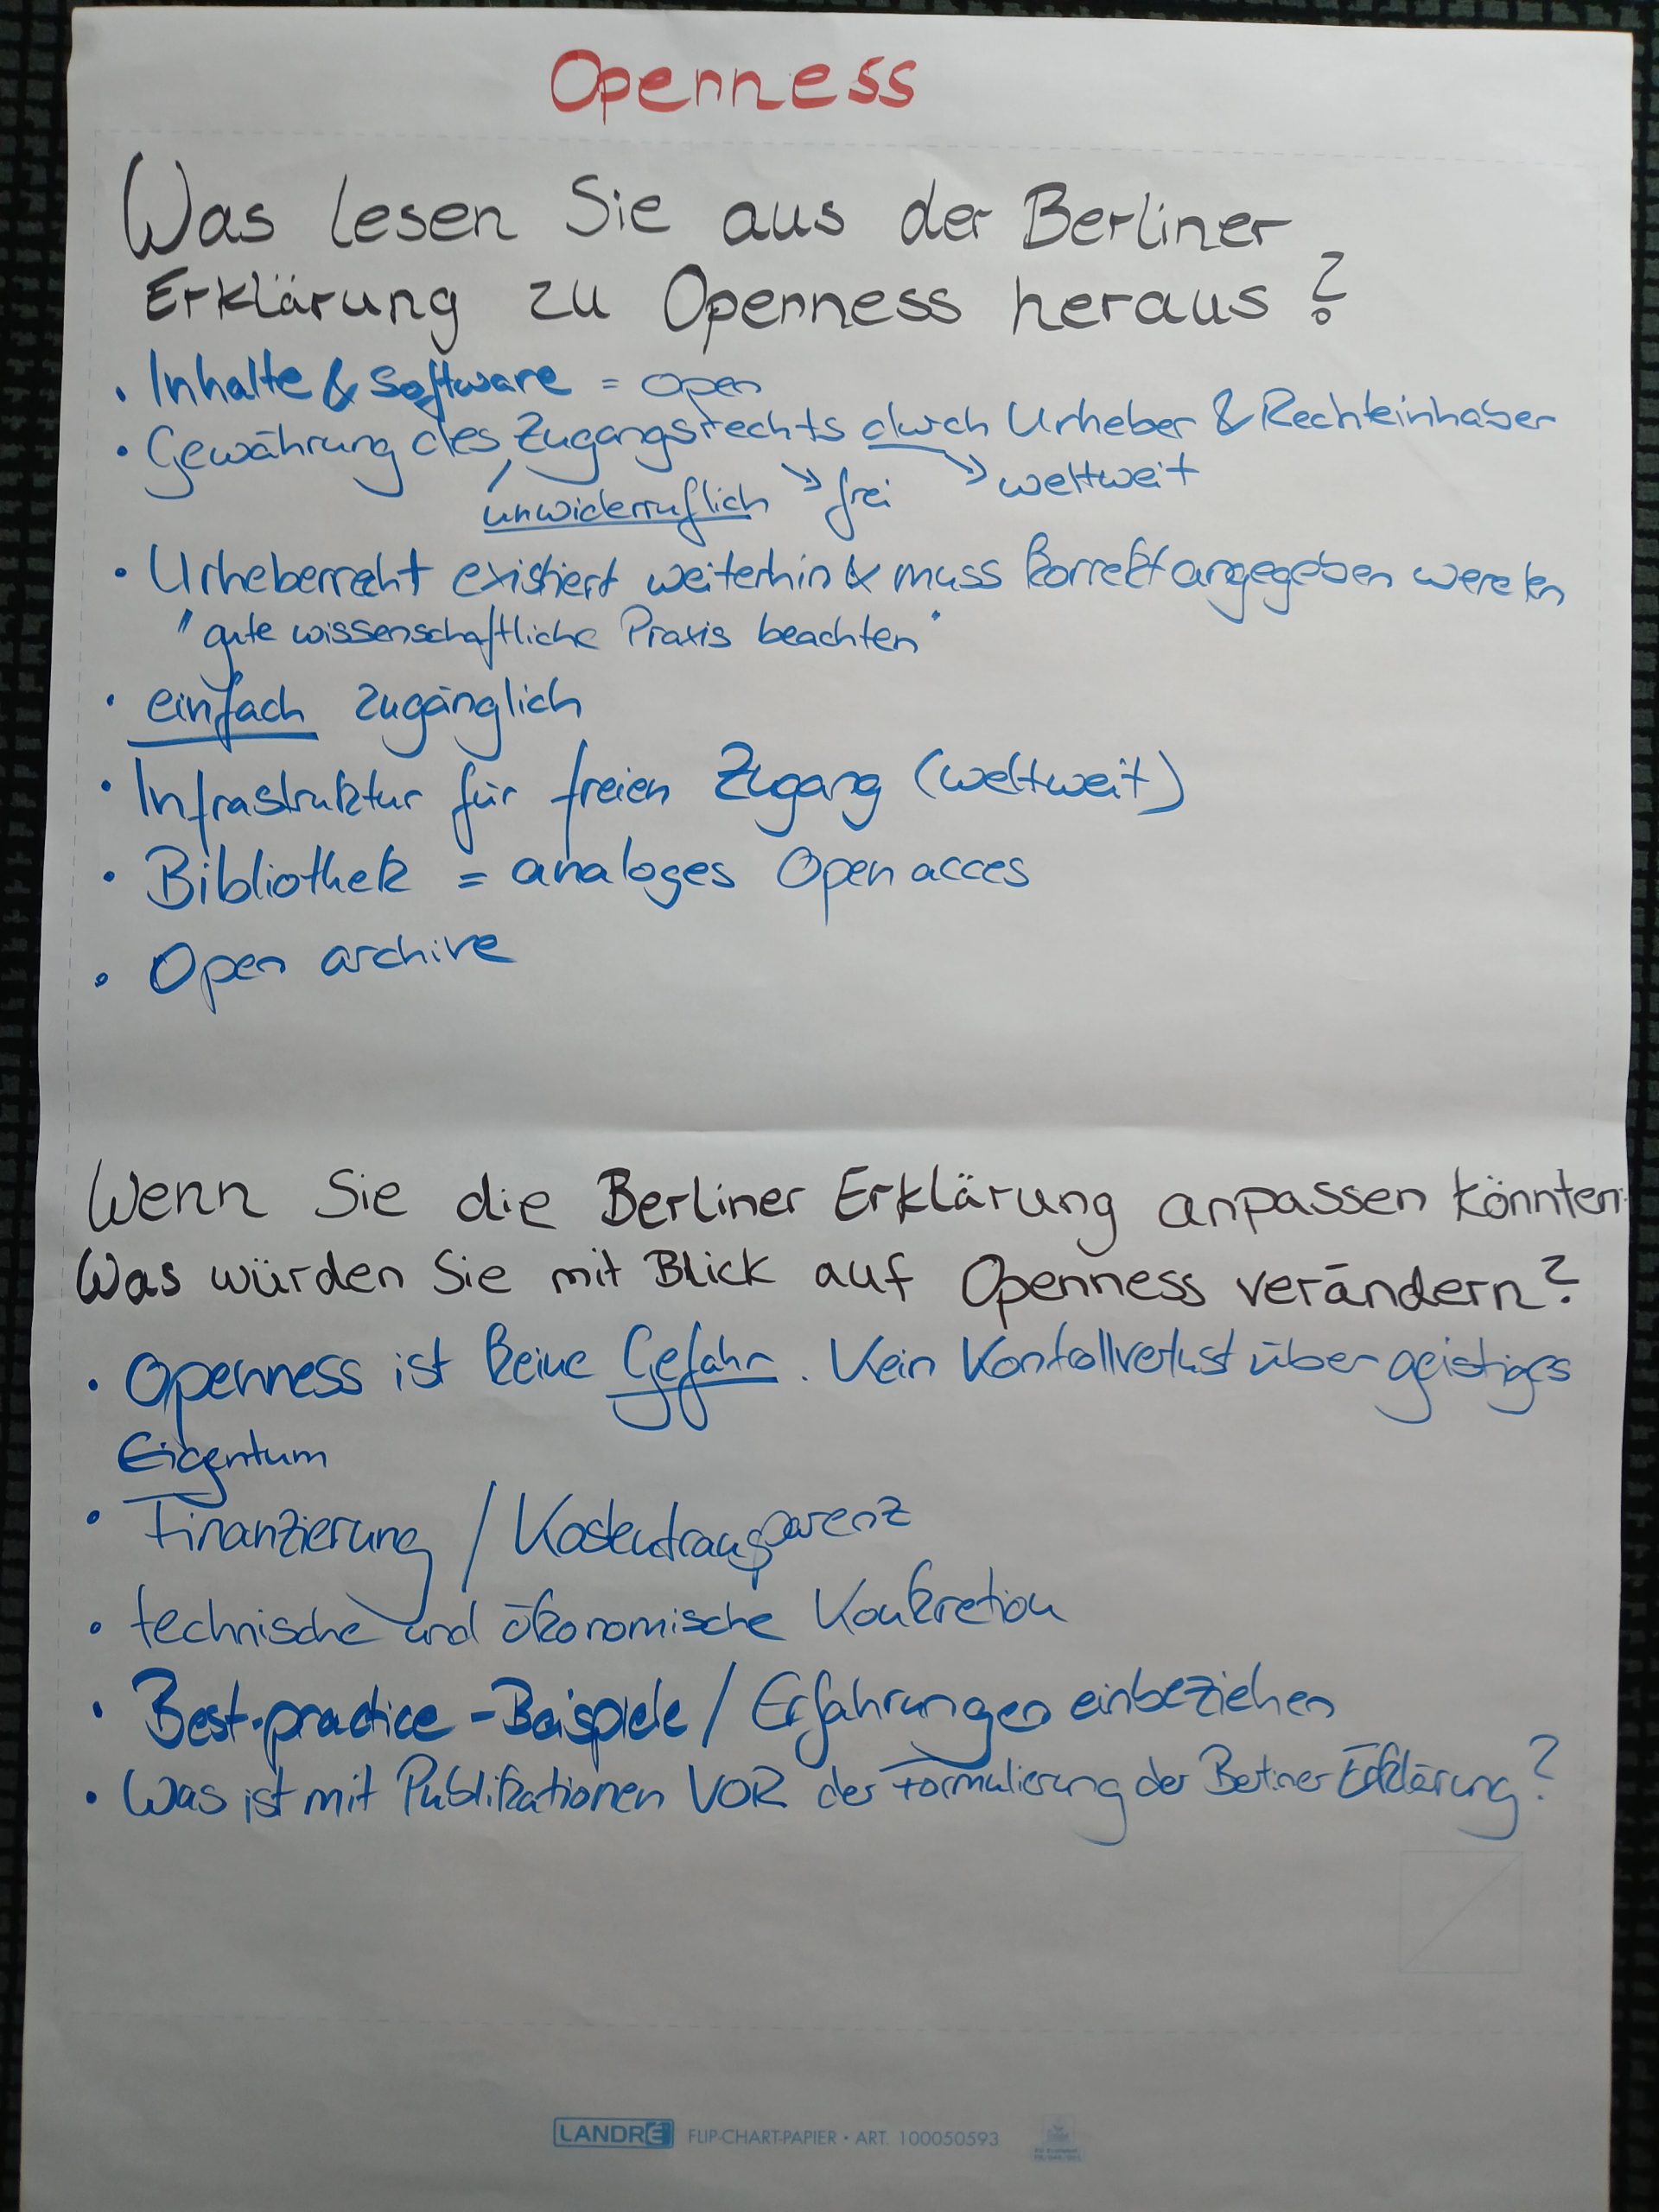 Openness
Was lesen Sie aus der Berliner
Erklärung zu Openness heraus?
• Inhalte & Software = open
• Gewährung des Zugangsrechts durch Urheber & Rechteinhaber
unwiderruflich frei weltweit
• Urheberrecht existiert weiterhin & muss korrekt angegeben werden
"gute wissenschaftliche Praxis beachten"
• einfach zugänglich
• Infrastruktur für freien Zugang (weltweit)
• Bibliothek = analoges Open acces
• Open archive
Wenn Sie die Berliner Erklärung anpassen könnten:
Was würden Sie mit Blick auf Openness verändern?
• Openness ist keine Gefahr. Kein Kontrollverlust über geistiges
Eigentum
• Finanzierung / Kostentransparenz
• technische und ökonomische Konkretion
• Best-practice-Beispiele / Erfahrungen einbeziehen
• Was ist mit Publikationen VOR der Formulierung der Berliner Erklärung?
LANDRÉ FLIP-CHART-PAPIER • ART. 100050593